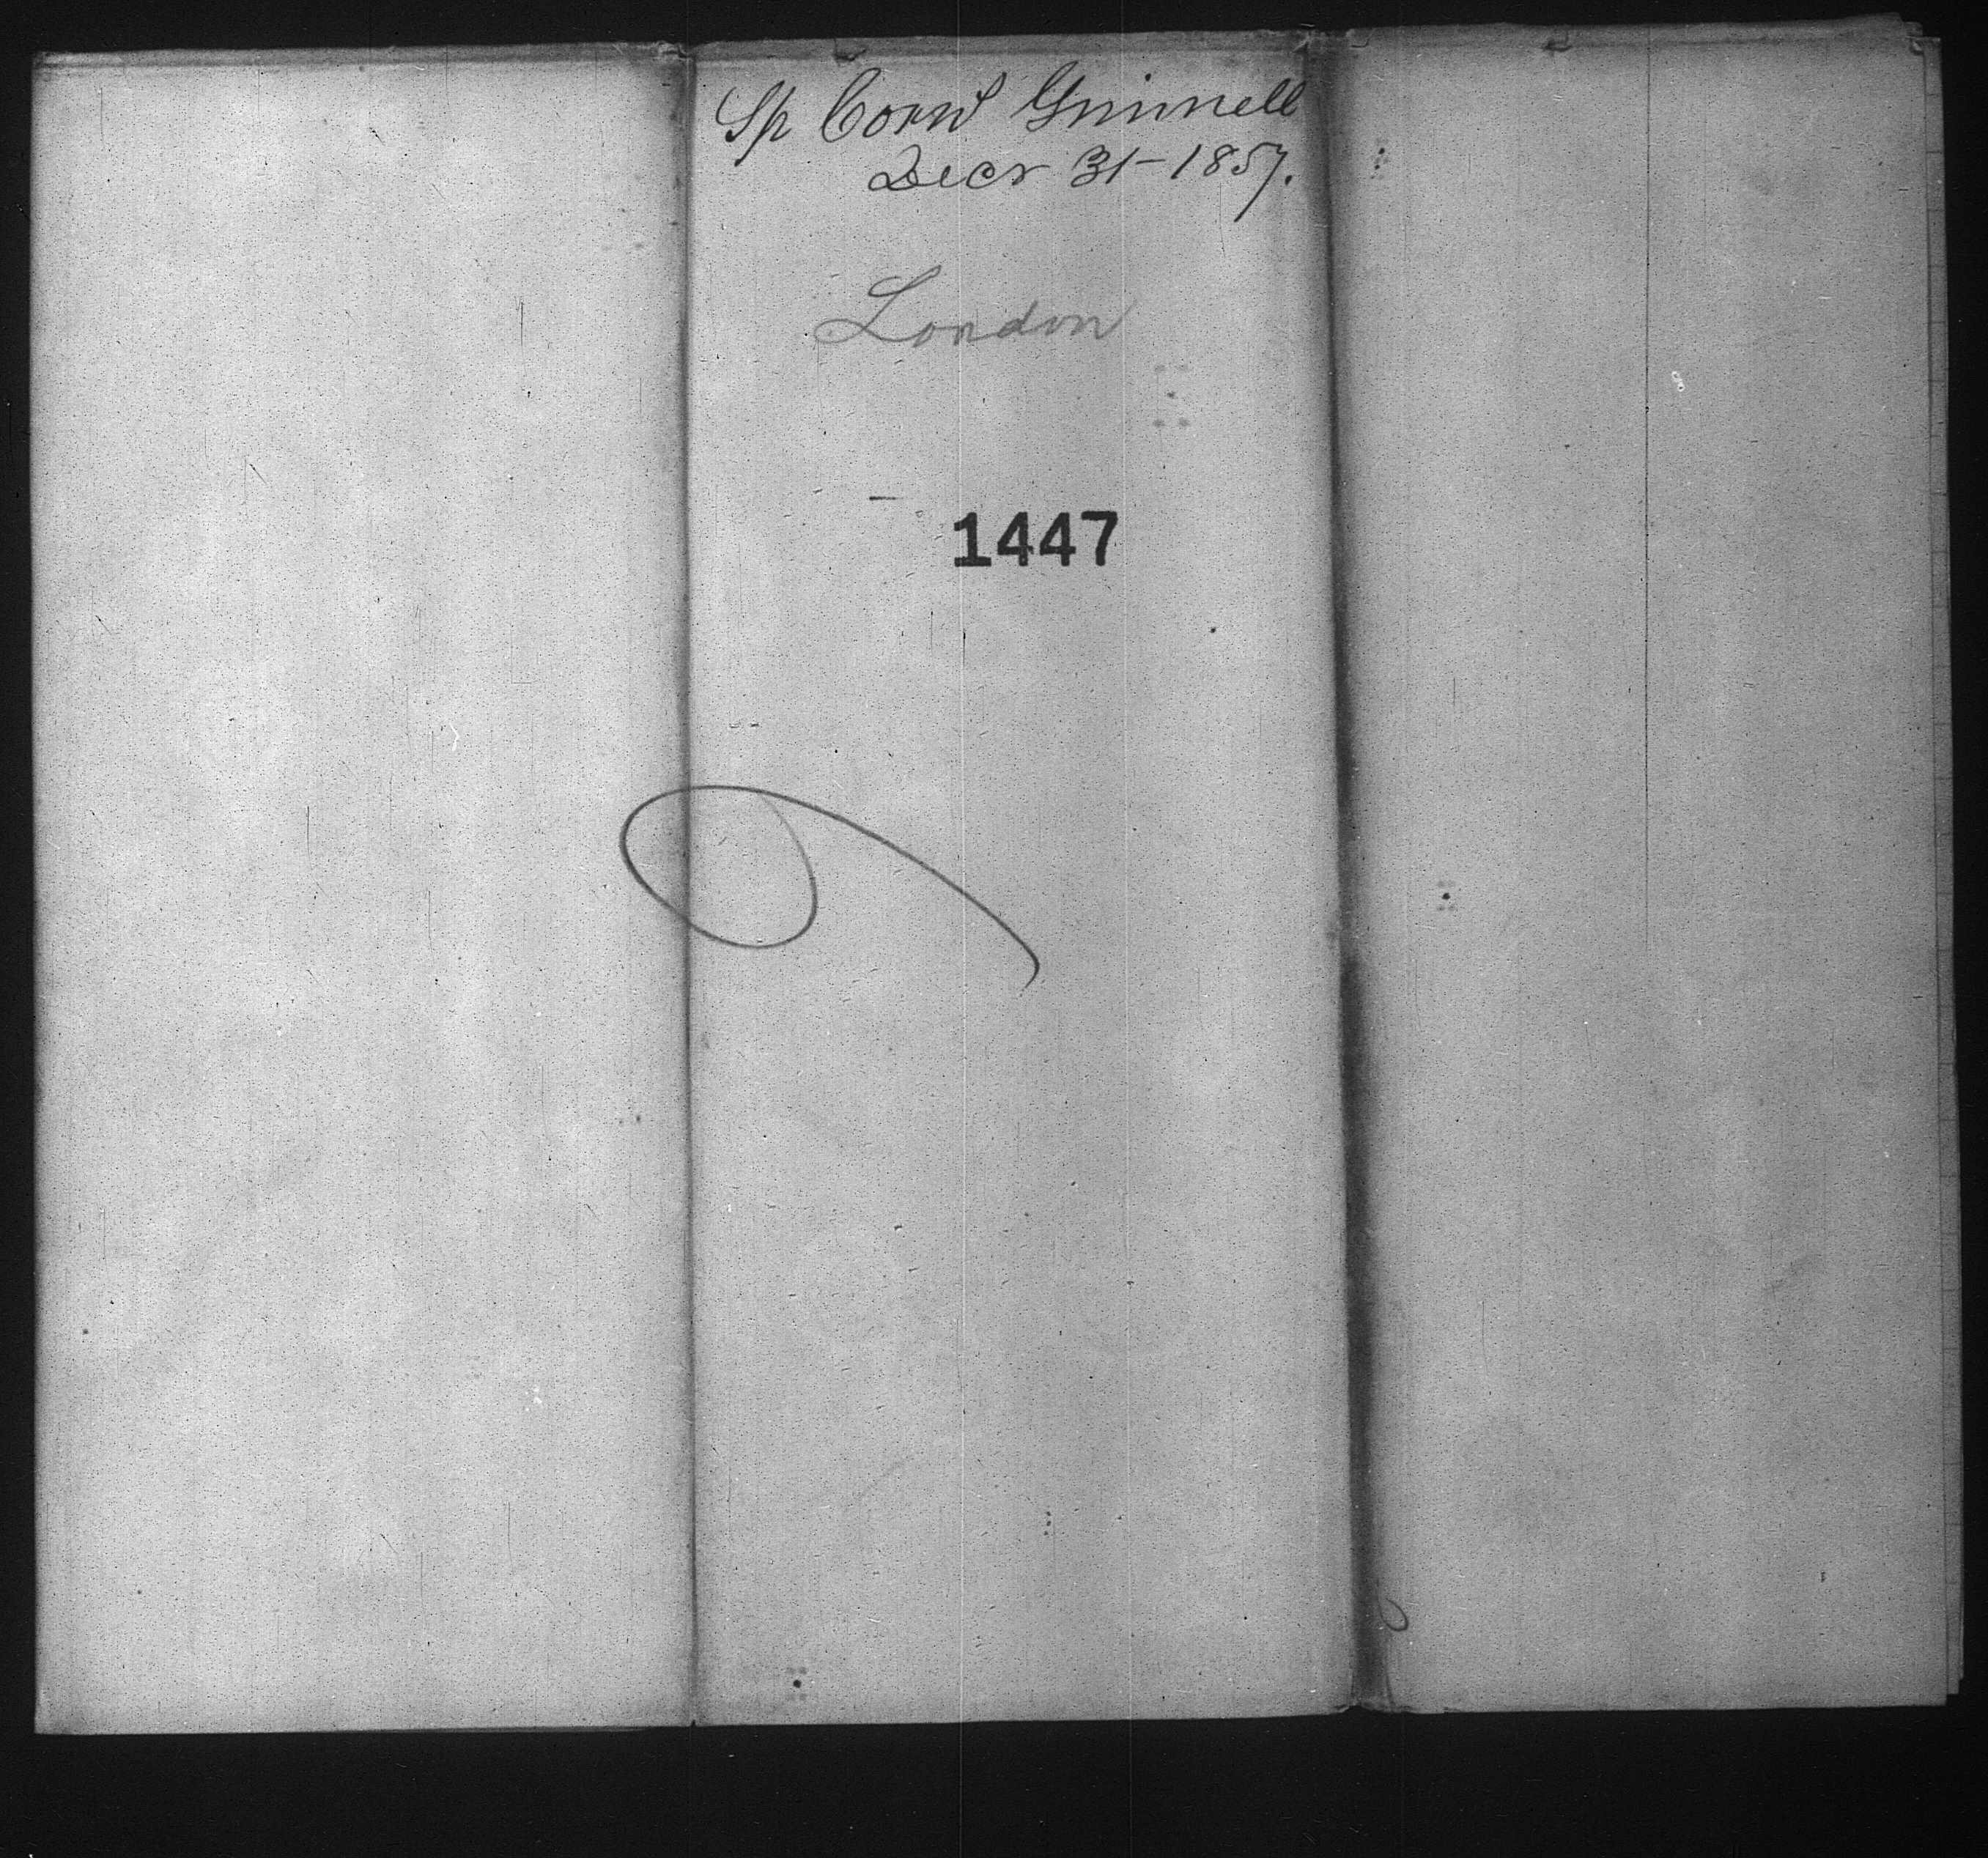 Sp Corns Grinnell
Decr 31-1857.
London
1447